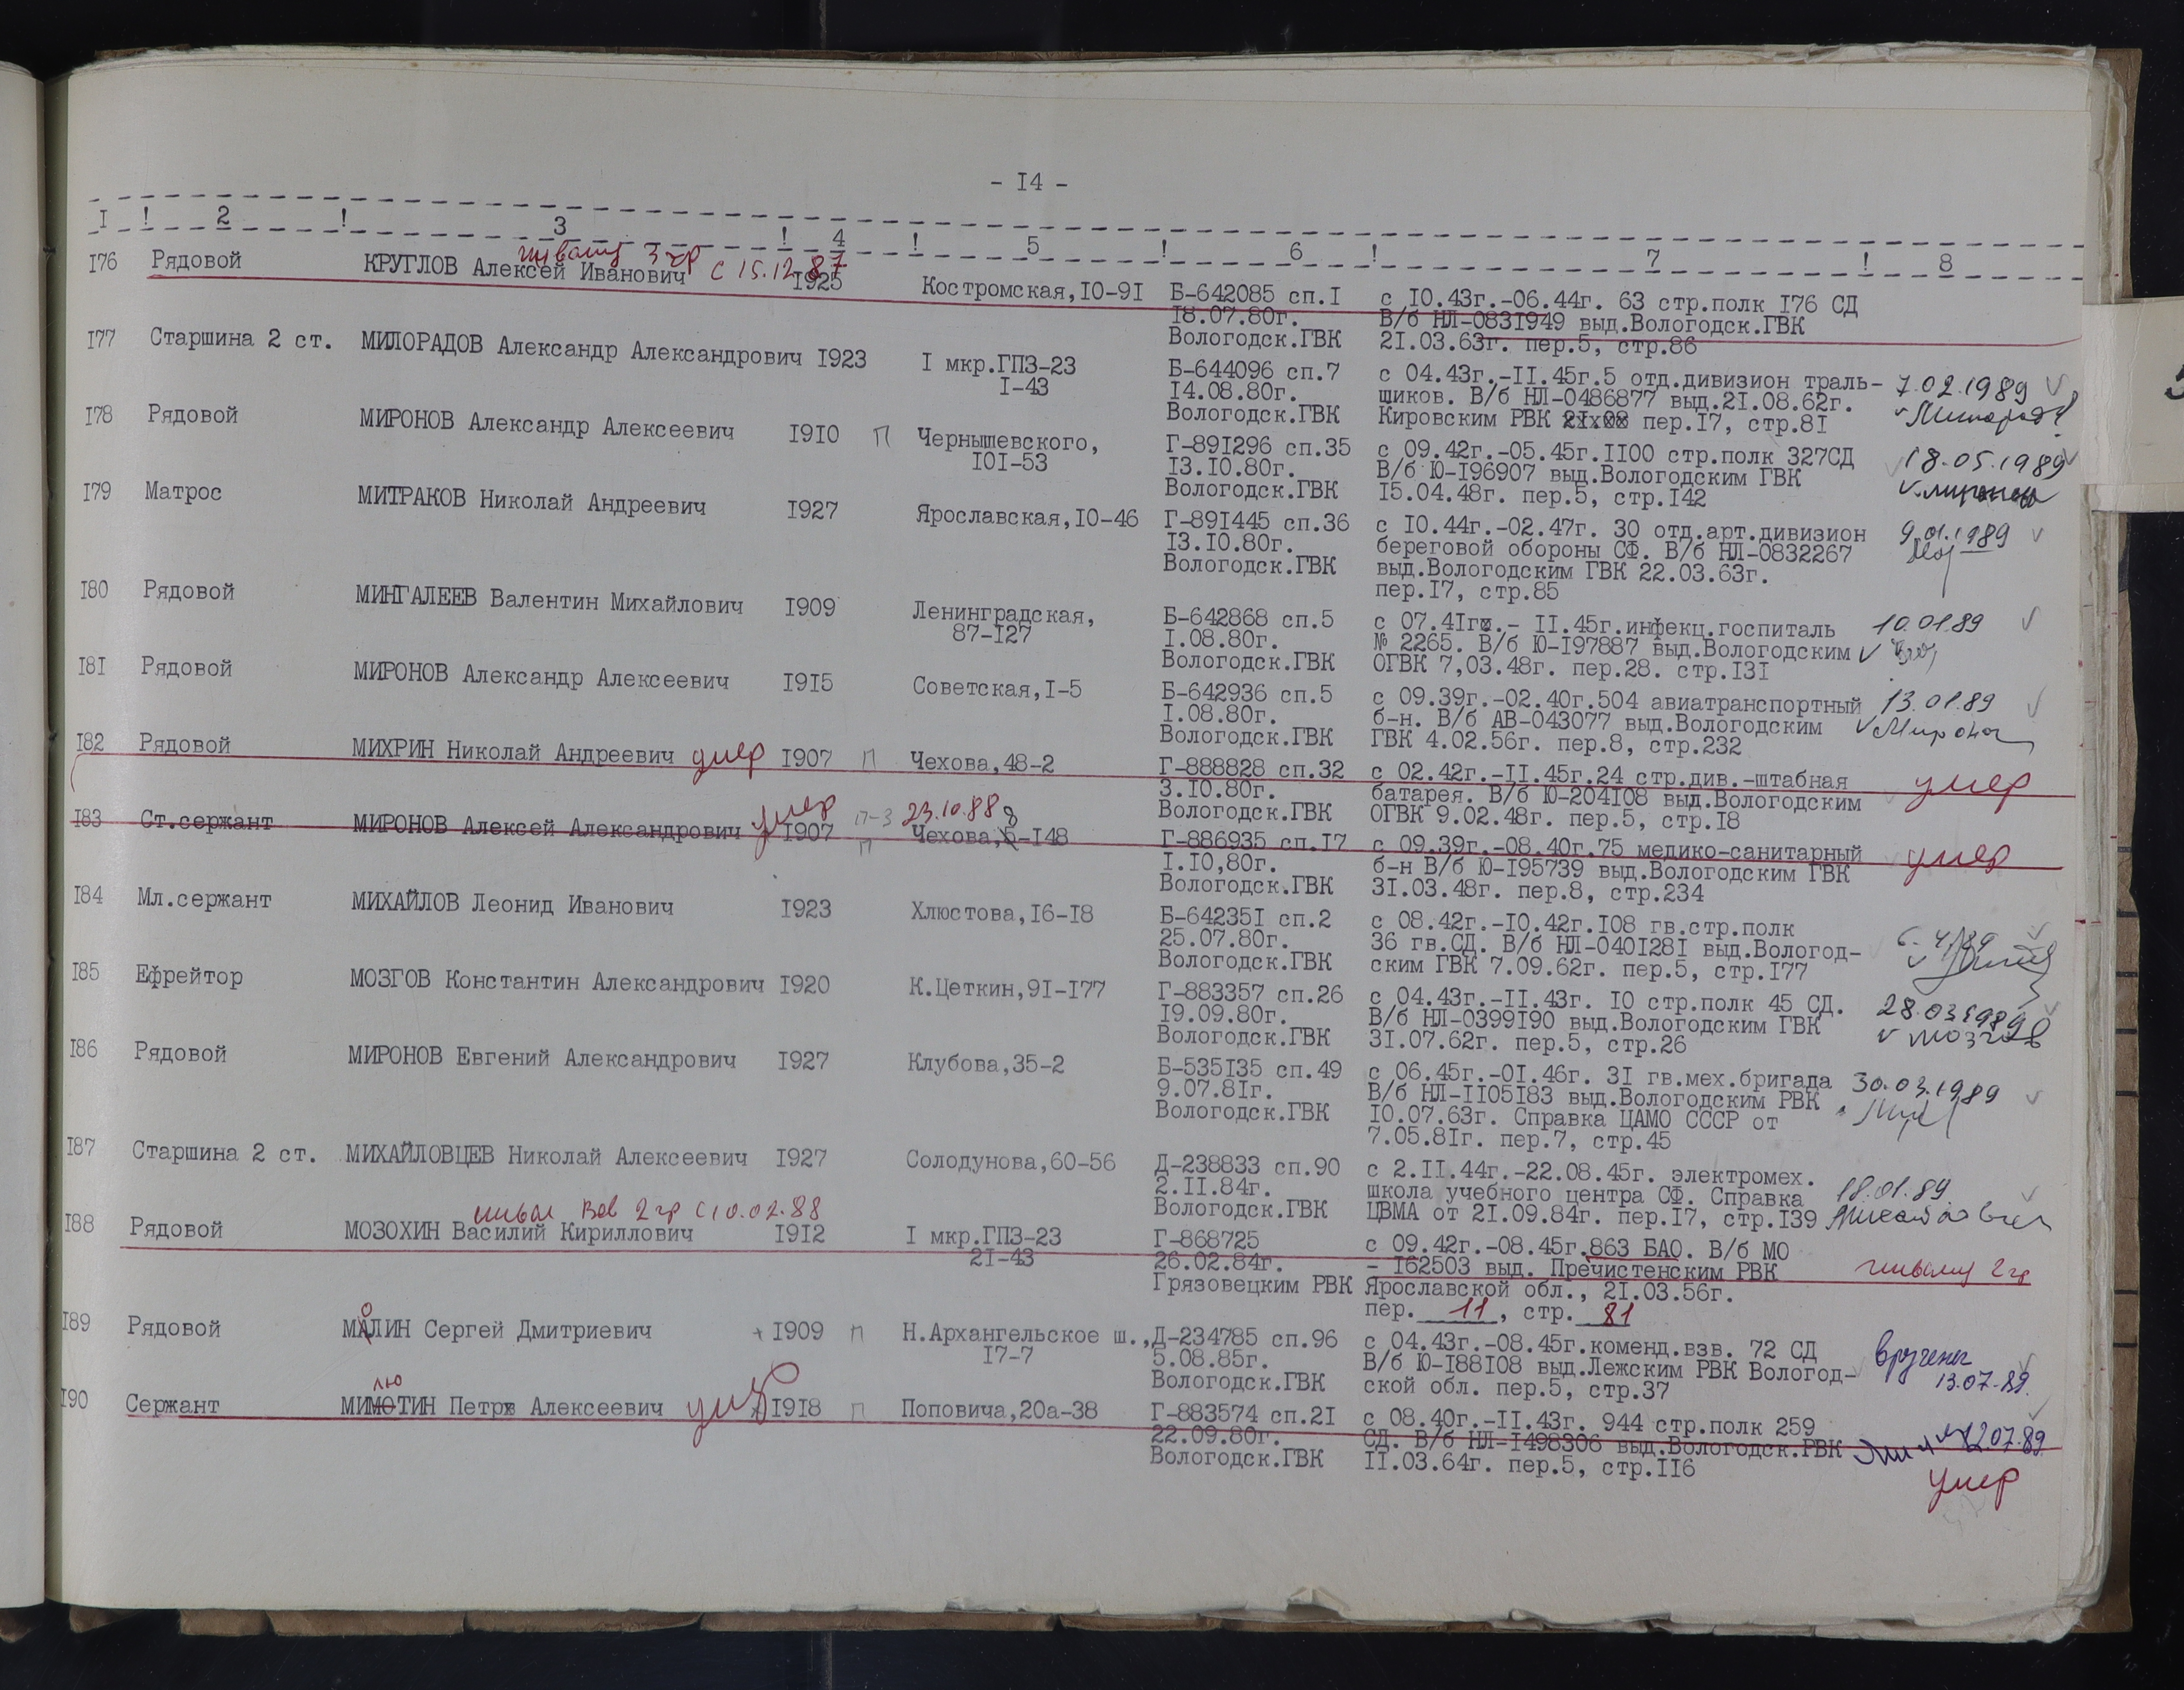 - I4 -
I ! 2 ! 3 ! 4 ! 5 ! 6 ! 7 ! 8
инвалид 3 гр с 15.12.87
I76 Рядовой КРУГЛОВ Алексей Иванович I925 Костромская,I0-9I Б-642085 сп.I с I0.43г.-06.44г. 63 стр.полк I76 СД
I8.07.80г. В/б НЛ-083I949 выд.Вологодск.ГВК
Вологодск.ГВК 2I.03.63г. пер.5, стр.86
I77 Старшина 2 ст. МИЛОРАДОВ Александр Александрович I923 I мкр.ГПЗ-23 Б-644096 сп.7 с 04.43г.-II.45г.5 отд.дивизион траль- 7.02.1989
I-43 I4.08.80г. щиков. В/б НЛ-0486877 выд.2I.08.62г.
Вологодск.ГВК Кировским РВК пер.I7, стр.8I
I78 Рядовой МИРОНОВ Александр Алексеевич I9I0 П Чернышевского, Г-89I296 сп.35 с 09.42г.-05.45г.II00 стр.полк 327СД 18.05.1989
I0I-53 I3.I0.80г. В/б Ю-I96907 выд.Вологодским ГВК
Вологодск.ГВК I5.04.48г. пер.5, стр.I42
I79 Матрос МИТРАКОВ Николай Андреевич I927 Ярославская,I0-46 Г-89I445 сп.36 с I0.44г.-02.47г. 30 отд.арт.дивизион 9.01.1989
I3.I0.80г. береговой обороны СФ. В/б НЛ-0832267
Вологодск.ГВК выд.Вологодским ГВК 22.03.63г.
пер.I7, стр.85
I80 Рядовой МИНГАЛЕЕВ Валентин Михайлович I909 Ленинградская, Б-642868 сп.5 с 07.4Iг.- II.45г.инфекц.госпиталь 10.01.89
87-I27 I.08.80г. № 2265. В/б Ю-I97887 выд.Вологодским
Вологодск.ГВК ОГВК 7,03.48г. пер.28. стр.I3I
I8I Рядовой МИРОНОВ Александр Алексеевич I9I5 Советская,I-5 Б-642936 сп.5 с 09.39г.-02.40г.504 авиатранспортный 13.01.89
I.08.80г. б-н. В/б АВ-043077 выд.Вологодским
Вологодск.ГВК ГВК 4.02.56г. пер.8, стр.232
I82 Рядовой МИХРИН Николай Андреевич умер I907 П Чехова,48-2 Г-888828 сп.32 с 02.42г.-II.45г.24 стр.див.-штабная умер
3.I0.80г. батарея. В/б Ю-204I08 выд.Вологодским
Вологодск.ГВК ОГВК 9.02.48г. пер.5, стр.I8
умер П-3 23.10.88 8
I83 Ст.сержант МИРОНОВ Алексей Александрович I907 П Чехова,6-I48 Г-886935 сп.I7 с 09.39г.-08.40г.75 медико-санитарный умер
I.I0,80г. б-н В/б Ю-I95739 выд.Вологодским ГВК
Вологодск.ГВК 3I.03.48г. пер.8, стр.234
I84 Мл.сержант МИХАЙЛОВ Леонид Иванович I923 Хлюстова,I6-I8 Б-64235I сп.2 с 08.42г.-I0.42г.I08 гв.стр.полк
25.07.80г. 36 гв.СД. В/б НЛ-040I28I выд.Вологод-
Вологодск.ГВК ским ГВК 7.09.62г. пер.5, стр.I77
I85 Ефрейтор МОЗГОВ Константин Александрович I920 К.Цеткин,9I-I77 Г-883357 сп.26 с 04.43г.-II.43г. I0 стр.полк 45 СД. 28.03.1989
I9.09.80г. В/б НЛ-0399I90 выд.Вологодским ГВК
Вологодск.ГВК 3I.07.62г. пер.5, стр.26 Мозгов
I86 Рядовой МИРОНОВ Евгений Александрович I927 Клубова,35-2 Б-535I35 сп.49 с 06.45г.-0I.46г. 3I гв.мех.бригада 30.03.1989
9.07.8Iг. В/б НЛ-II05I83 выд.Вологодским РВК
Вологодск.ГВК I0.07.63г. Справка ЦАМО СССР от
7.05.8Iг. пер.7, стр.45
I87 Старшина 2 ст. МИХАЙЛОВЦЕВ Николай Алексеевич I927 Солодунова,60-56 Д-238833 сп.90 с 2.II.44г.-22.08.45г. электромех.
2.II.84г. школа учебного центра СФ. Справка 18.01.89
Вологодск.ГВК ЦВМА от 2I.09.84г. пер.I7, стр.I39
инвал ВОВ 2 гр с 10.02.88
I88 Рядовой МОЗОХИН Василий Кириллович I9I2 I мкр.ГПЗ-23 Г-868725 с 09.42г.-08.45г.863 БАО. В/б МО
2I-43 26.02.84г. - I62503 выд. Пречистенским РВК инвалид 2 гр
Грязовецким РВК Ярославской обл., 2I.03.56г.
пер. 11, стр. 81
о
I89 Рядовой МАЛИН Сергей Дмитриевич I909 П Н.Архангельское ш., Д-234785 сп.96 с 04.43г.-08.45г.коменд.взв. 72 СД вручены
I7-7 5.08.85г. В/б Ю-I88I08 выд.Лежским РВК Вологод- 13.07.89.
Вологодск.ГВК ской обл. пер.5, стр.37
лю
I90 Сержант МИМОТИН Петр Алексеевич умер I9I8 П Поповича,20а-38 Г-883574 сп.2I с 08.40г.-II.43г. 944 стр.полк 259
22.09.80г. СД. В/б НЛ-I498306 выд.Вологодск.РВК 12.07.89
Вологодск.ГВК II.03.64г. пер.5, стр.II6 умер